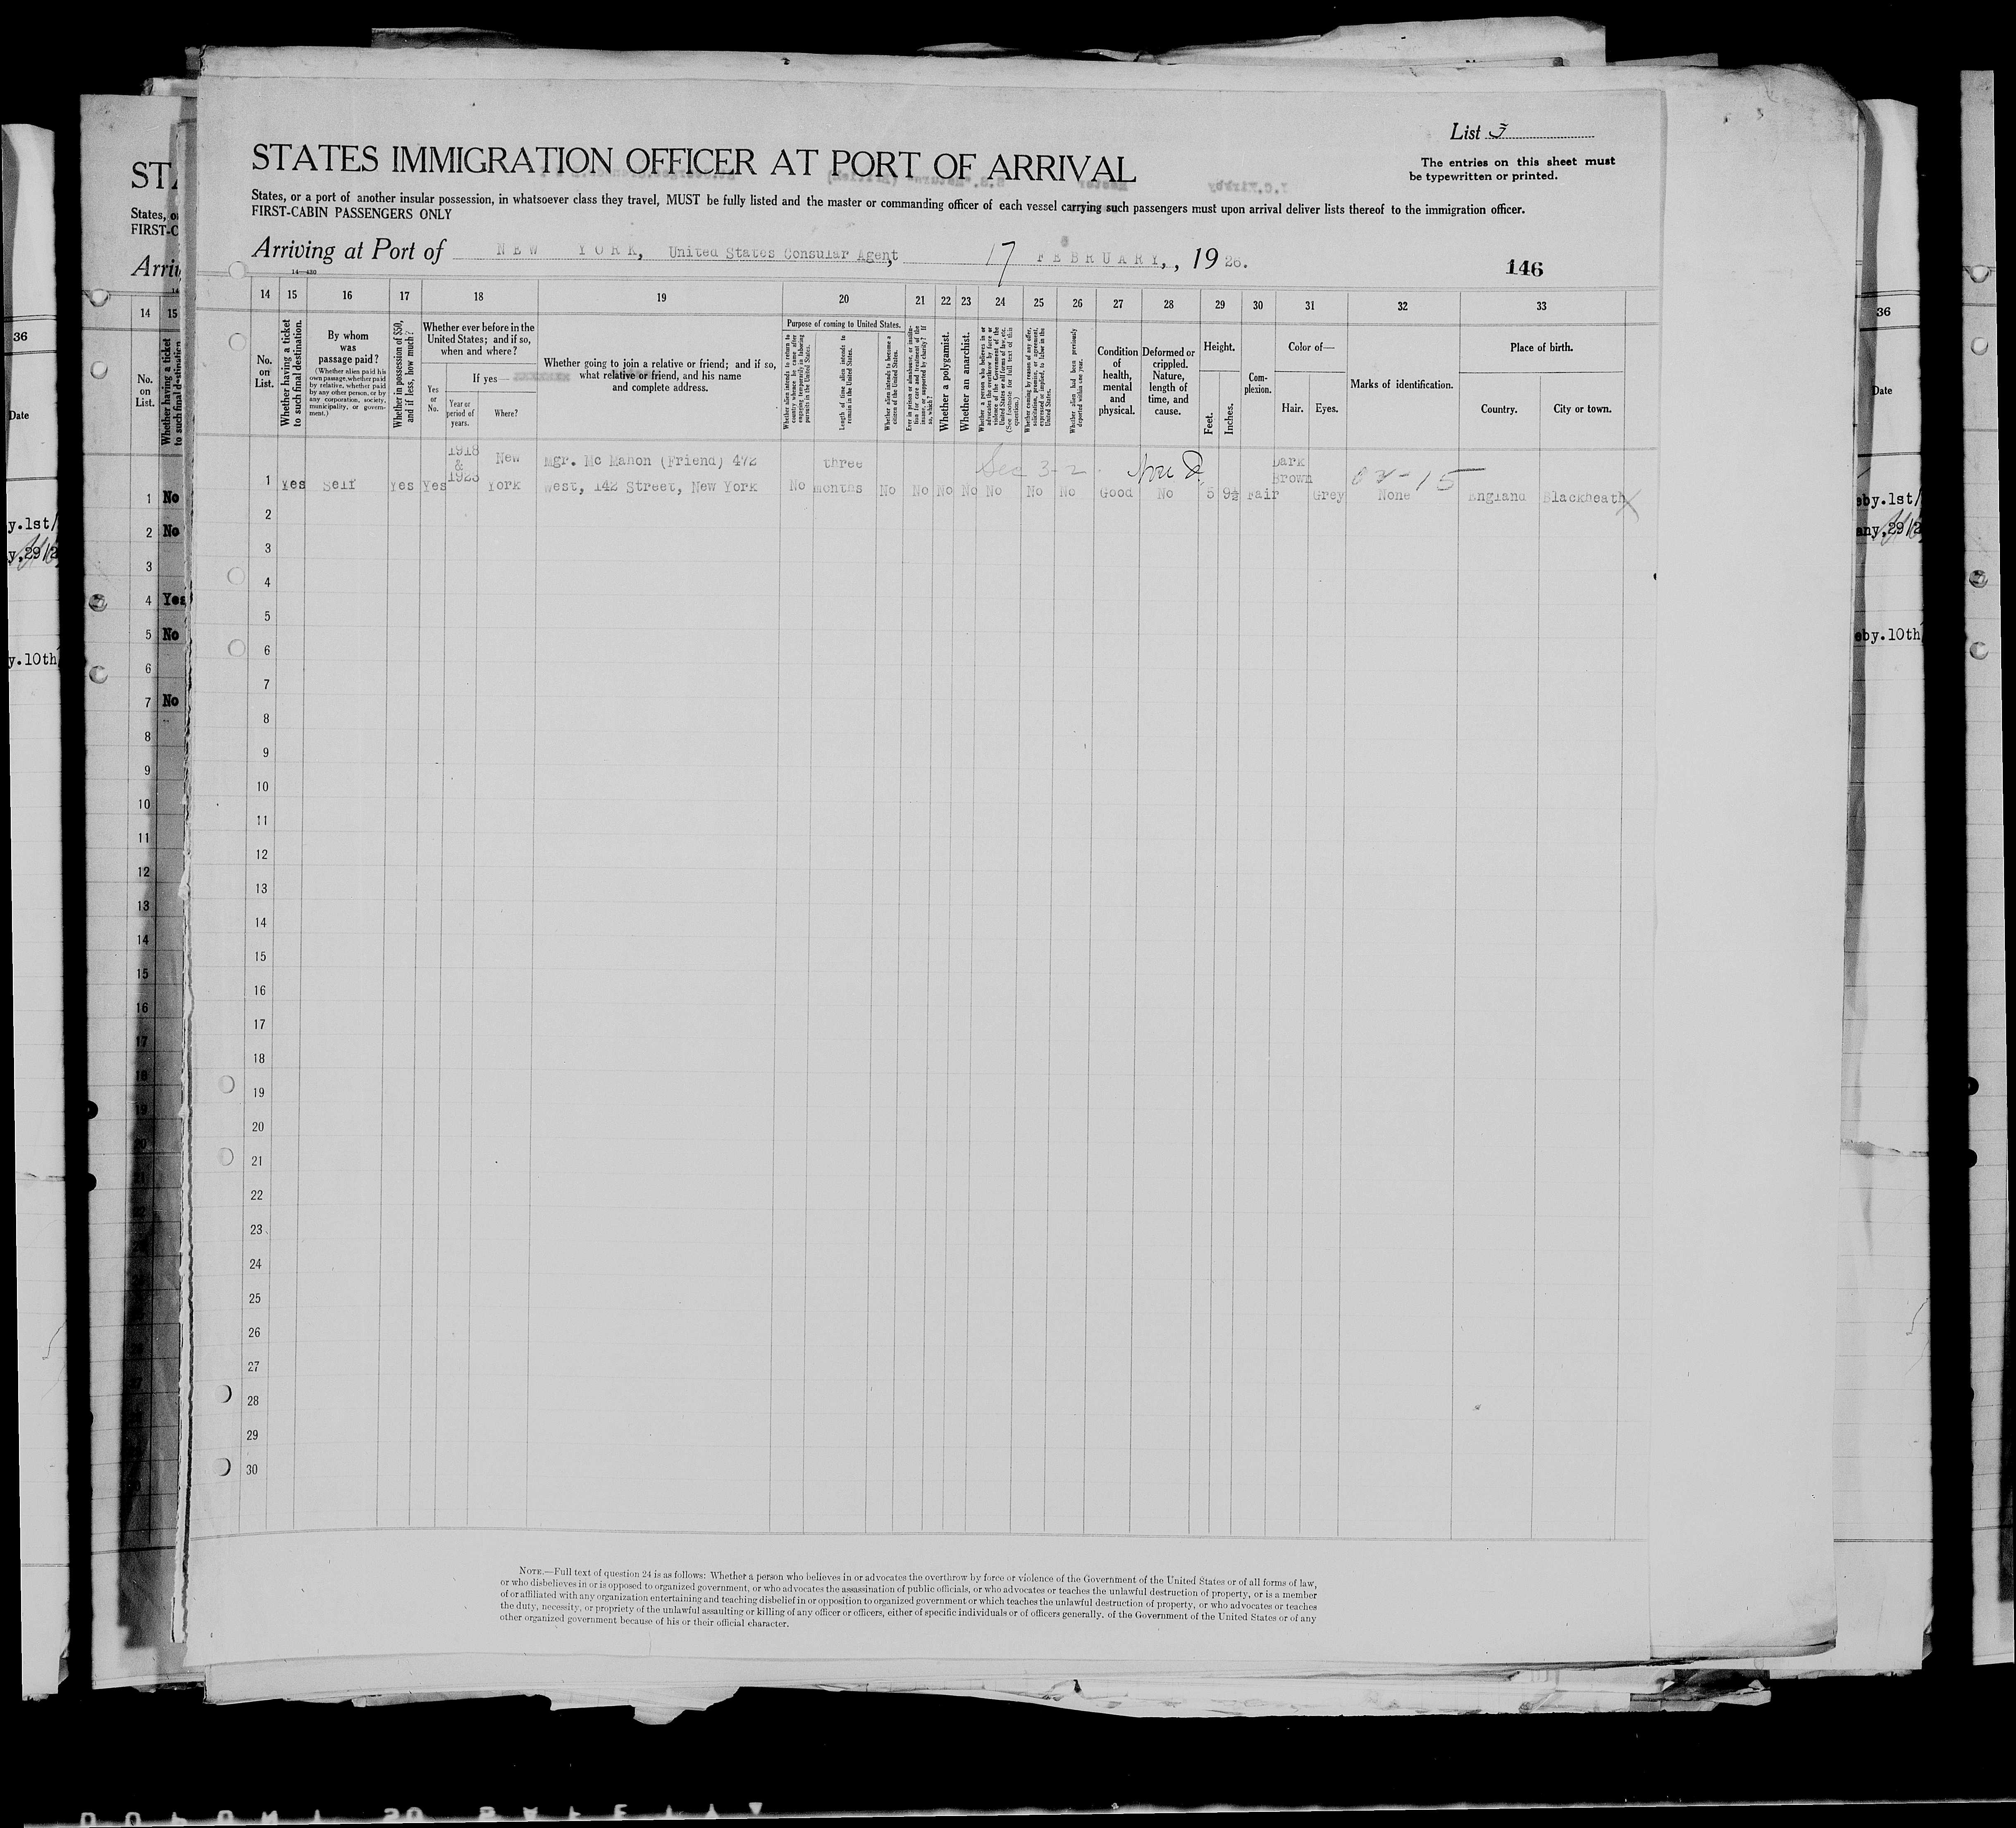 List 3
The entries on this sheet must
be typewritten or printed.
STATES IMMIGRATION OFFICER AT PORT OF ARRIVAL
States, or a port of another insular possession, in whatsoever class they travel, MUST be fully listed and the master or commanding officer of each vessel carrying such passengers must upon arrival deliver lists thereof to the immigration officer.
FIRST-CABIN PASSENGERS ONLY
Arriving at Port of NEW YORK, United States Consular Agent, 17 FEBRUARY, , 19 26.
146
14—430
14 15 16 17 18 19 20 21 22 23 24 25 26 27 28 29 30 31 32 33
No. on List.
Whether having a ticket to such final destination.
By whom was passage paid?
(Whether alien paid his own passage, whether paid by relative, whether paid by any other person, or by any corporation, society, municipality, or government.)
Whether in possession of $50, and if less, how much?
Whether ever before in the United States; and if so, when and where?
Yes or No.
If yes—
Year or period of years.
Where?
Whether going to join a relative or friend; and if so, what relative or friend, and his name and complete address.
Purpose of coming to United States.
Whether alien intends to return to country whence he came after engaging temporarily in laboring pursuits in the United States.
Length of time alien intends to remain in the United States.
Whether alien intends to become a citizen of the United States.
Ever in prison or almshouse, or institution for care and treatment of the insane, or supported by charity? If so, which?
Whether a polygamist.
Whether an anarchist.
Whether a person who believes in or advocates the overthrow by force or violence of the Government of the United States or all forms of law, etc. (See footnote for full text of this question.)
Whether coming by reason of any offer, solicitation, promise, or agreement, expressed or implied, to labor in the United States.
Whether alien had been previously deported within one year.
Condition of health, mental and physical.
Deformed or crippled. Nature, length of time, and cause.
Height.
Feet.
Inches.
Complexion.
Color of—
Hair.
Eyes.
Marks of identification.
Place of birth.
Country.
City or town.
1918 & 1923 New Mgr. Mc Mahon (Friend) 472 three Sec 3-2. Dark Brown
1 Yes Self Yes Yes York West, 142 Street, New York No months No No No No No No No Good No 5 9½ Fair Grey None England Blackheath
2
3
4
5
6
7
8
9
10
11
12
13
14
15
16
17
18
19
20
21
22
23
24
25
26
27
28
29
30
NOTE.—Full text of question 24 is as follows: Whether a person who believes in or advocates the overthrow by force or violence of the Government of the United States or of all forms of law,
or who disbelieves in or is opposed to organized government, or who advocates the assassination of public officials, or who advocates or teaches the unlawful destruction of property, or is a member
of or affiliated with any organization entertaining and teaching disbelief in or opposition to organized government or which teaches the unlawful destruction of property, or who advocates or teaches
the duty, necessity, or propriety of the unlawful assaulting or killing of any officer or officers, either of specific individuals or of officers generally, of the Government of the United States or of any
other organized government because of his or their official character.